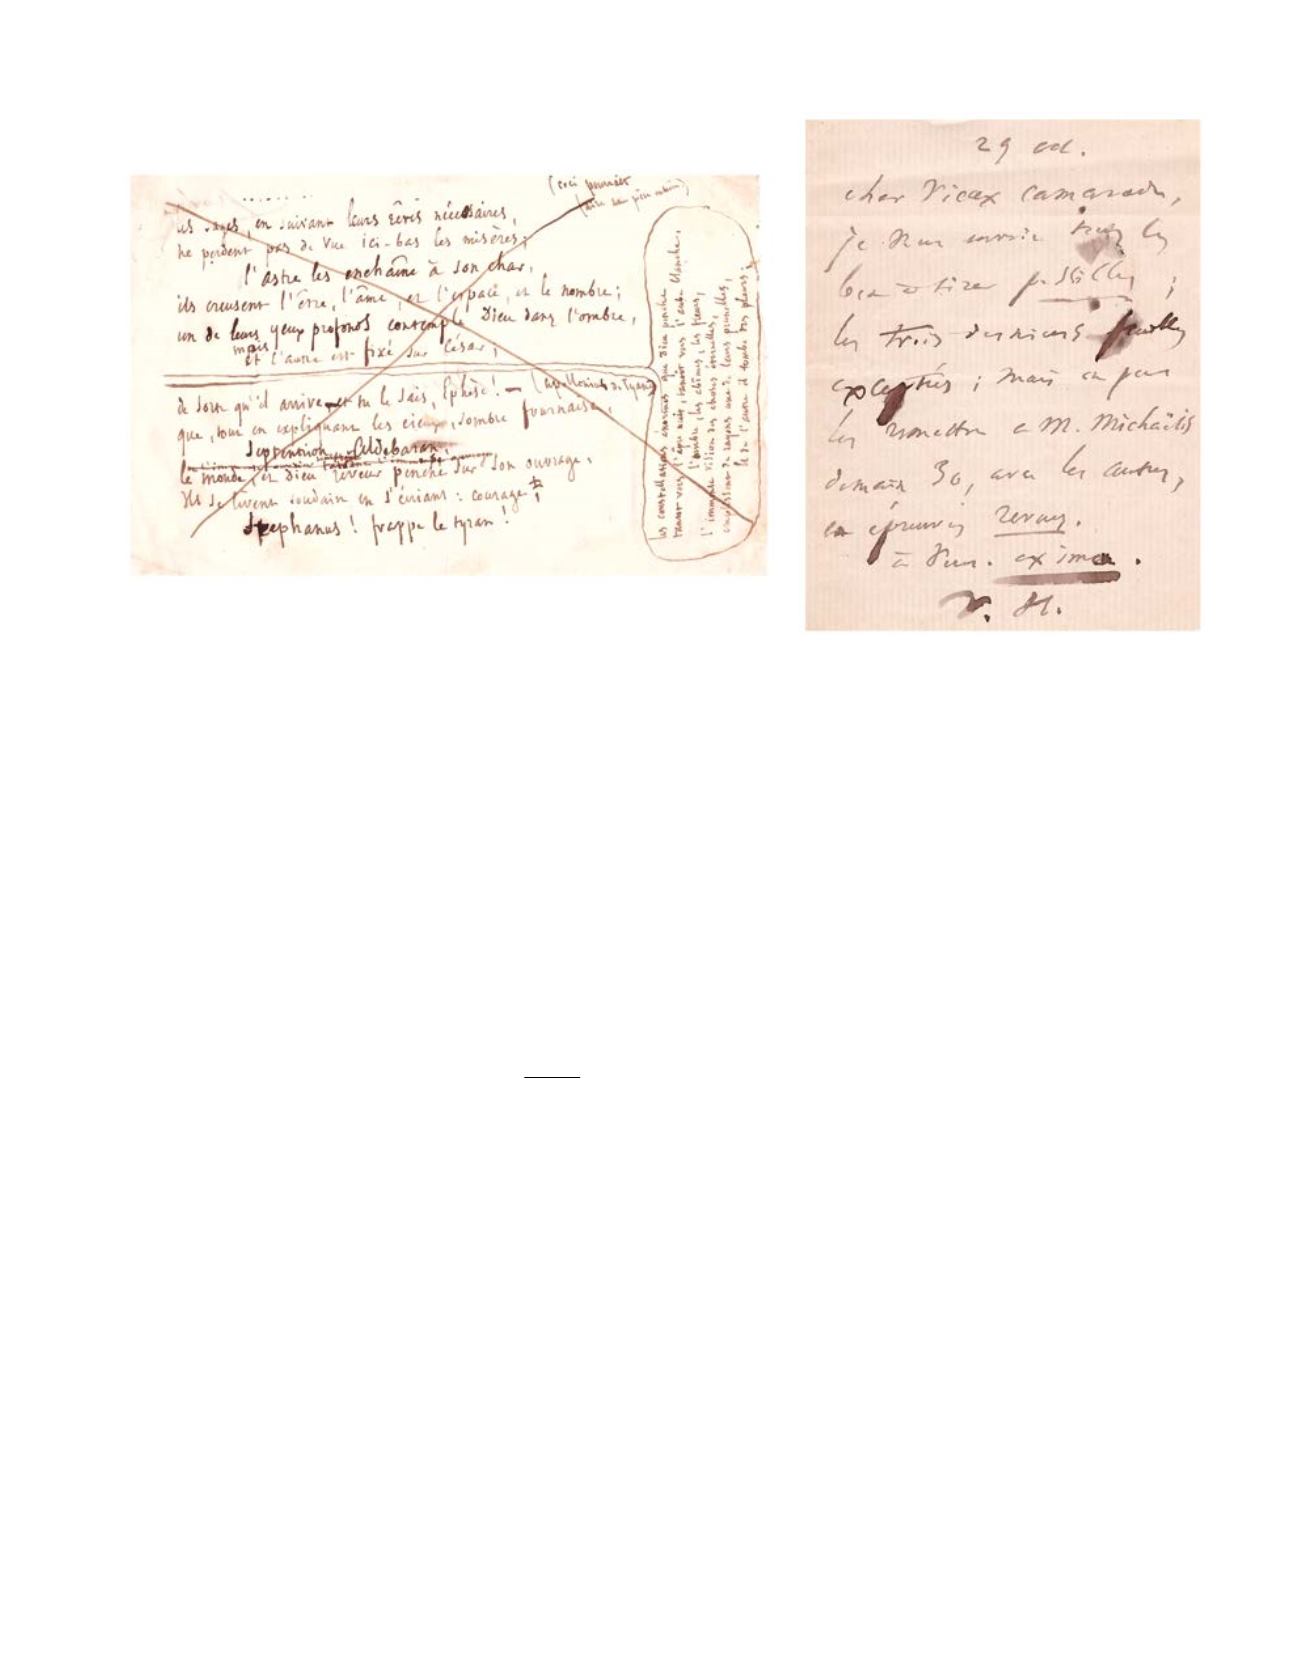 (ceci pourrait
les sages, en suivant leurs rêves nécessaires,
ne perdent pas de vue ici-bas les misères;
l'astre les enchaîne à son char,
ils creusent l'être, l'âme, et l'espace, et le nombre;
un de leurs yeux profonds contemple Dieu dans l'ombre,
mais
et l'autre est fixé sur César;
de sorte qu'il arrive, et tu le sais, Éphèse! — (Apollonius de Tyane)
que, tout en expliquant les cieux, sombre fournaise,
Septentrion, Aldebaran,
le monde, et Dieu rêveur penché sur son ouvrage,
Ils se lèvent soudain en s'écriant: courage,
Stephanus! frappe le tyran!
les constellations énormes que Dieu penche
tantôt vers l'âpre nuit, tantôt vers l'aube blanche,
l'ombre, les abîmes, les fleurs,
l'immense vision des choses éternelles,
emplissent de rayons une de leurs prunelles,
et de l'autre il tombe des pleurs;
29 oct.
cher Vieux camarade,
je vous envoie tous les
bon à tirer p. ;
les trois derniers
exceptés; mais on peut
les remettre à M. Michaëlis
demain 30, avec les autres,
en épreuves revues.
à vous. ex imo.
V. H.